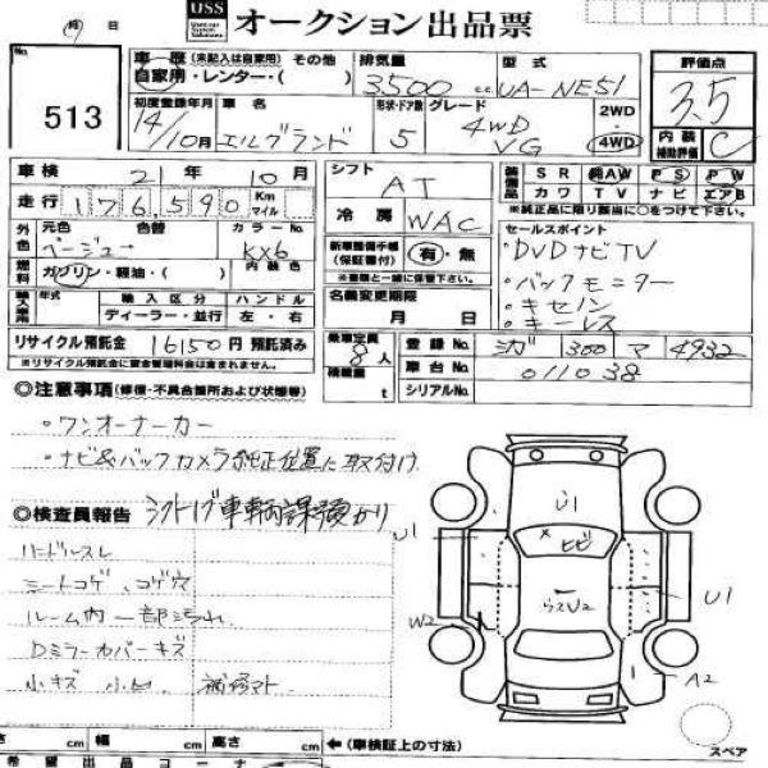 USS オークション出品票
日
No. 513
車歴 (未記入は自家用) その他
自家用・レンター・( )
排気量 3500 c.c.
型式 UA-NE51
評価点 3.5
内装補助評価 C
初度登録年月 14/10月
車名 エルグランド
形状・ドア数 5
グレード 4WD VG
2WD・4WD
車検 21年 10月
走行 176,590 Km マイル
シフト AT
冷房 WAC
装備品 SR 純AW PS PW
カワ TV ナビ エアB
※純正品に限り該当に○をつけて下さい。
外色 元色 ベージュー 色替 カラーNo. KX6
燃料 ガソリン・軽油・( ) 内装色
新車整備手帳(保証書付) 有・無
※書類と一緒に保管下さい。
セールスポイント
・DVDナビTV
・バックモニター
・キセノン
・キーレス
輸入車用 年式 輸入区分 ハンドル
ディーラー・並行 左・右
名義変更期限
月 日
リサイクル預託金 16150円 預託済み
※リサイクル預託金に資金管理料金は含まれません。
乗車定員 8人
積載量 t
登録No. シガ 300 マ 4932
車台No. 011038
シリアルNo.
◎注意事項(修復・不具合箇所および状態等)
・ワンオーナーカー
・ナビ&バックカメラ純正位置に取付け
◎検査員報告
ハンドルスレ
シートコゲ、コゲ穴
ルーム内一部汚れ
Dミラーカバーキズ
小キズ 小凹. 補修マト
U1
U1
× ヒビ
U2
U1
W2
A2
スペア
cm 幅 cm 高さ cm ←(車検証上の寸法)
希望出品コーナー